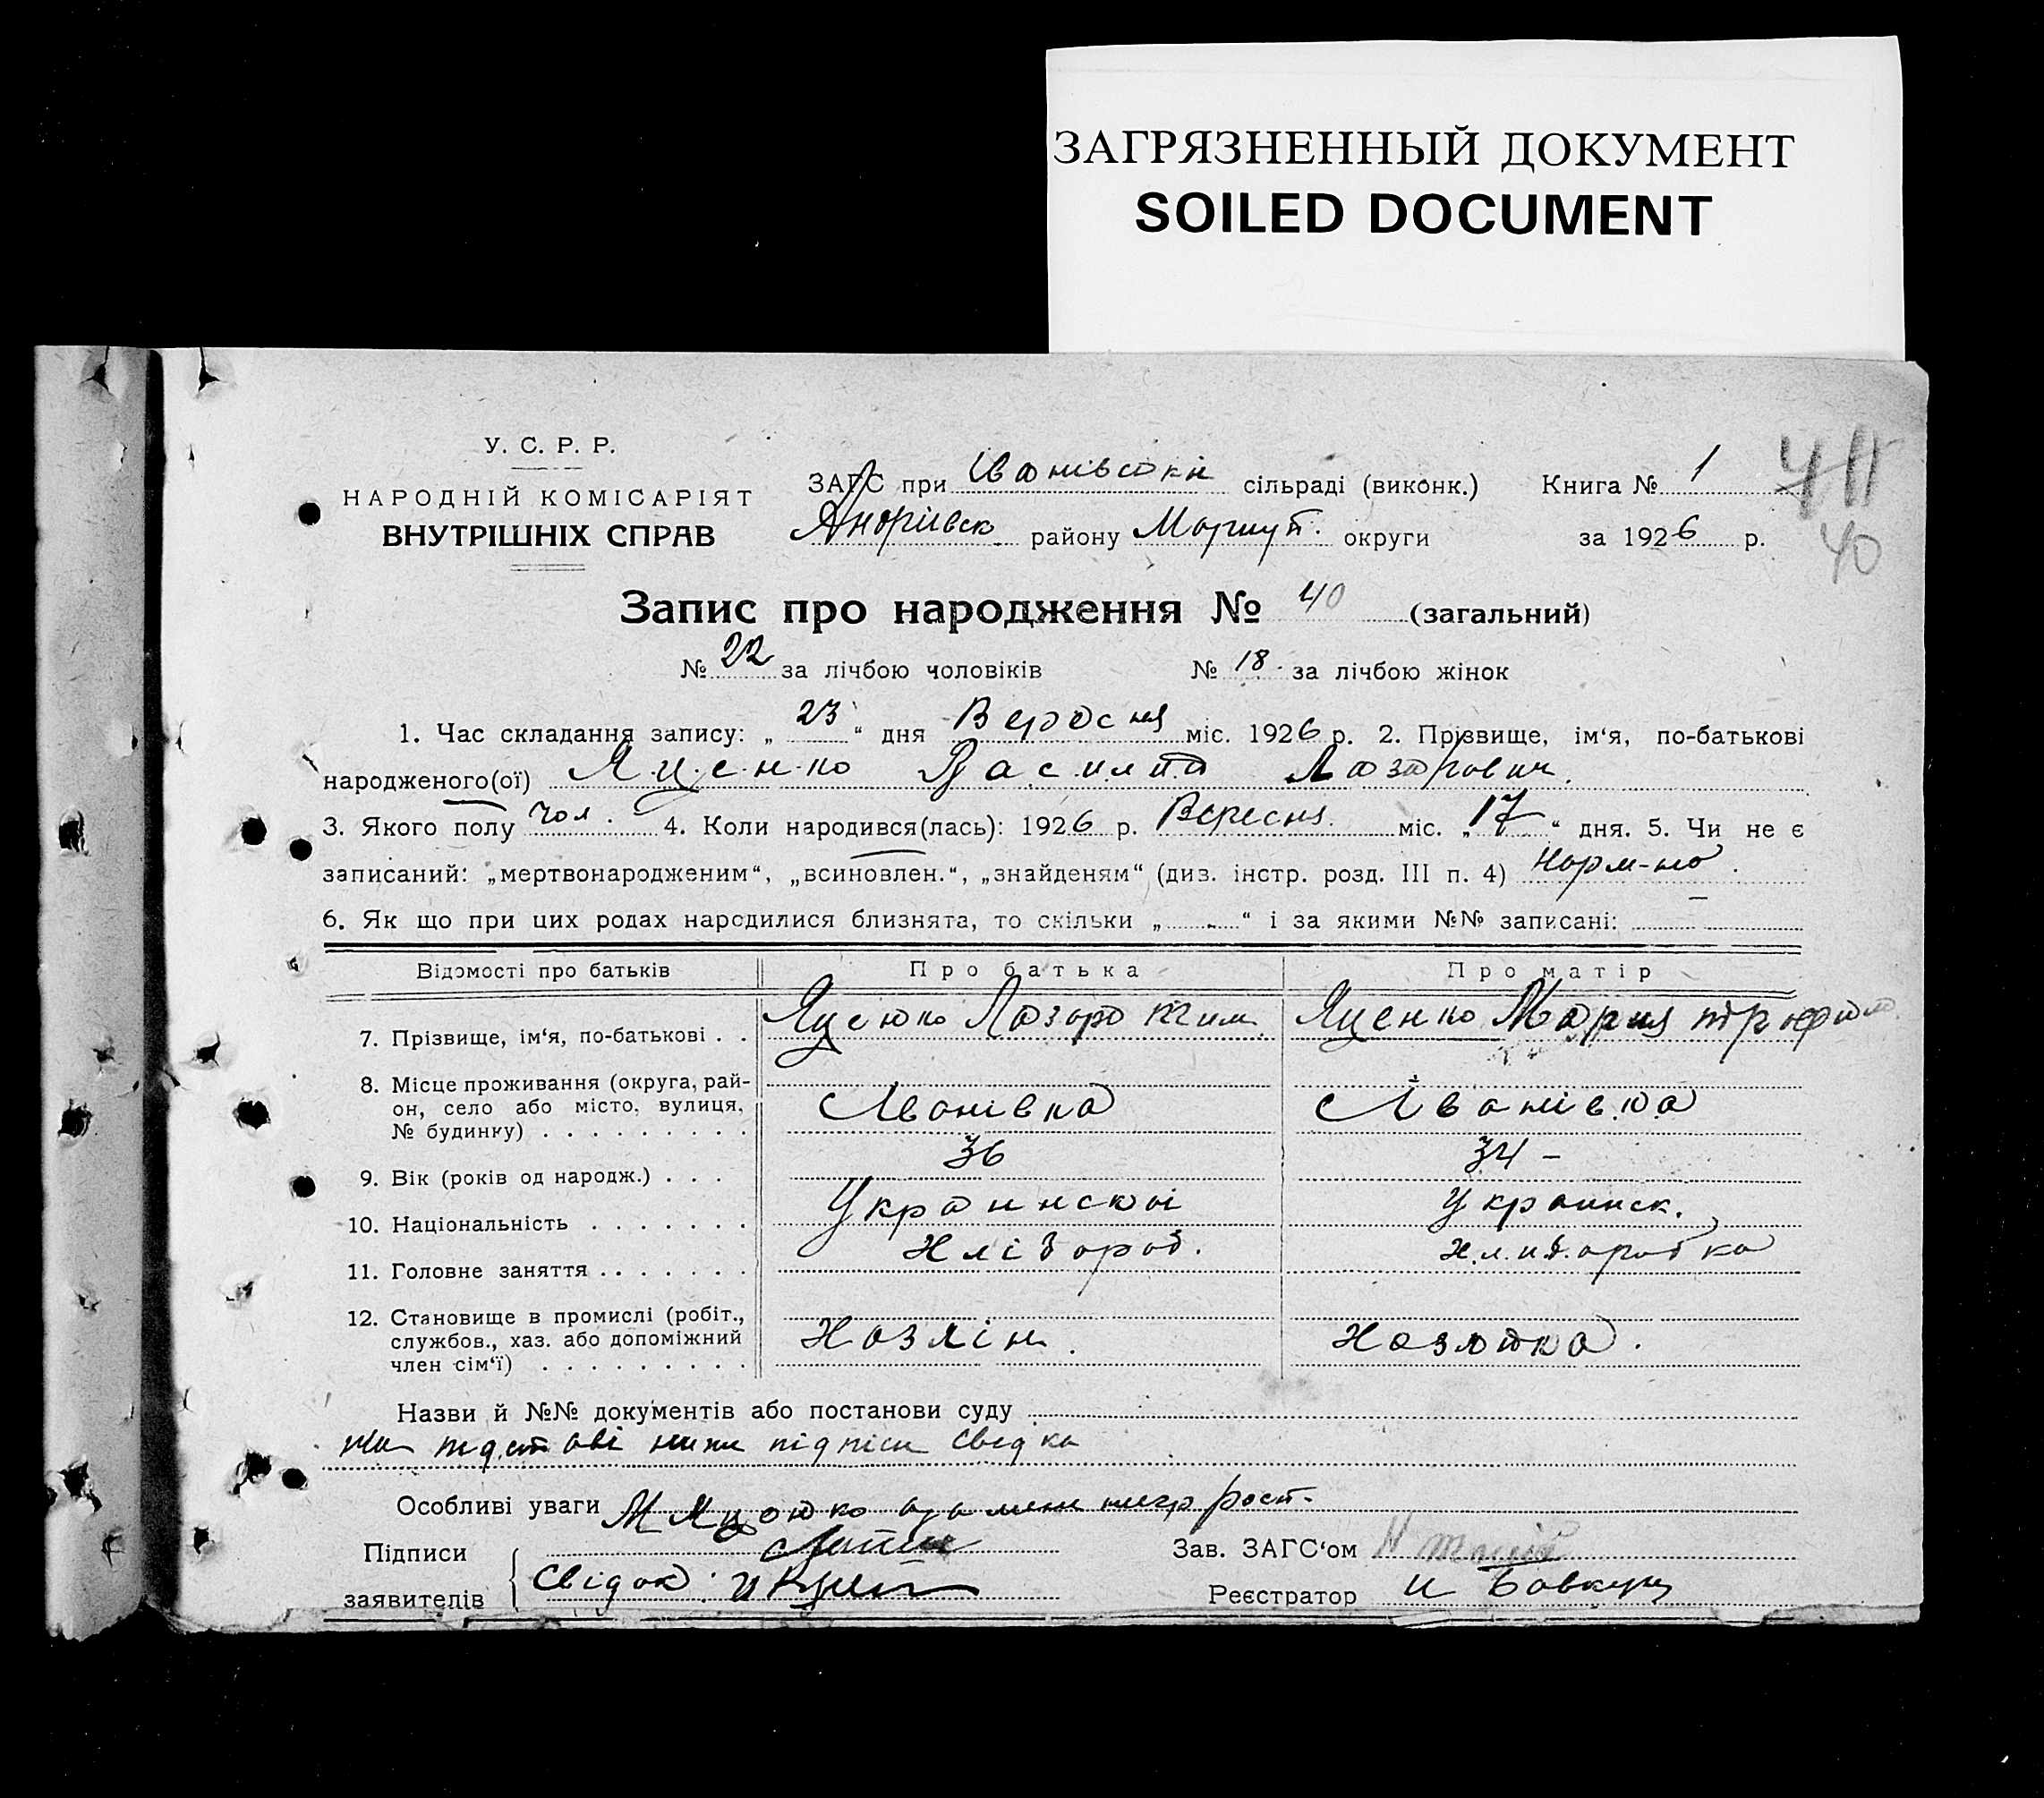 ЗАГРЯЗНЕННЫЙ ДОКУМЕНТ
SOILED DOCUMENT
У. С. Р. Р.
НАРОДНІЙ КОМІСАРІЯТ
ВНУТРІШНІХ СПРАВ
ЗАГС при Іванівській сільраді (виконк.) Книга № 1
Андріївск району Маріуп. округи за 1926 р.
411
40
Запис про народження № 40 (загальний)
№ 22 за лічбою чоловіків № 18 за лічбою жінок
1. Час складання запису: „23“ дня Вересня міс. 1926 р. 2. Прізвище, ім‘я, по-батькові
народженого(ої) Яценко Василий Лазарович.
3. Якого полу чол. 4. Коли народився(лась): 1926 р. Вересня міс. „17“ дня. 5. Чи не є
записаний: „мертвонародженим“, „всиновлен.“, „знайденям“ (диз. інстр. розд. III п. 4) норм-но.
6. Як що при цих родах народилися близнята, то скільки „ - “ і за якими №№ записані:
Відомості про батьків Про батька Про матір
7. Прізвище, ім‘я, по-батькові . . Яценко Лазарь Тим. Яценко Мария
8. Місце проживання (округа, рай-
он, село або місто, вулиця,
№ будинку) . . . . . . . . . Іванівка Іванівка
9. Вік (років од народж.) . . . 36 34 -
10. Національність . . . . . . . Украинскоі Украинск.
11. Головне заняття . . . . . . . Хлібороб. Хлибаробка
12. Становище в промислі (робіт.,
службов., хаз. або допоміжний
член сім‘ї) . . . . . . . . . Хозяін. Хозяйка.
Назви й №№ документів або постанови суду
На підставі підписи свідка
Особливі уваги
Підписи
заявителів
Свідок:
Зав. ЗАГС‘ом
Реєстратор И Бовкун